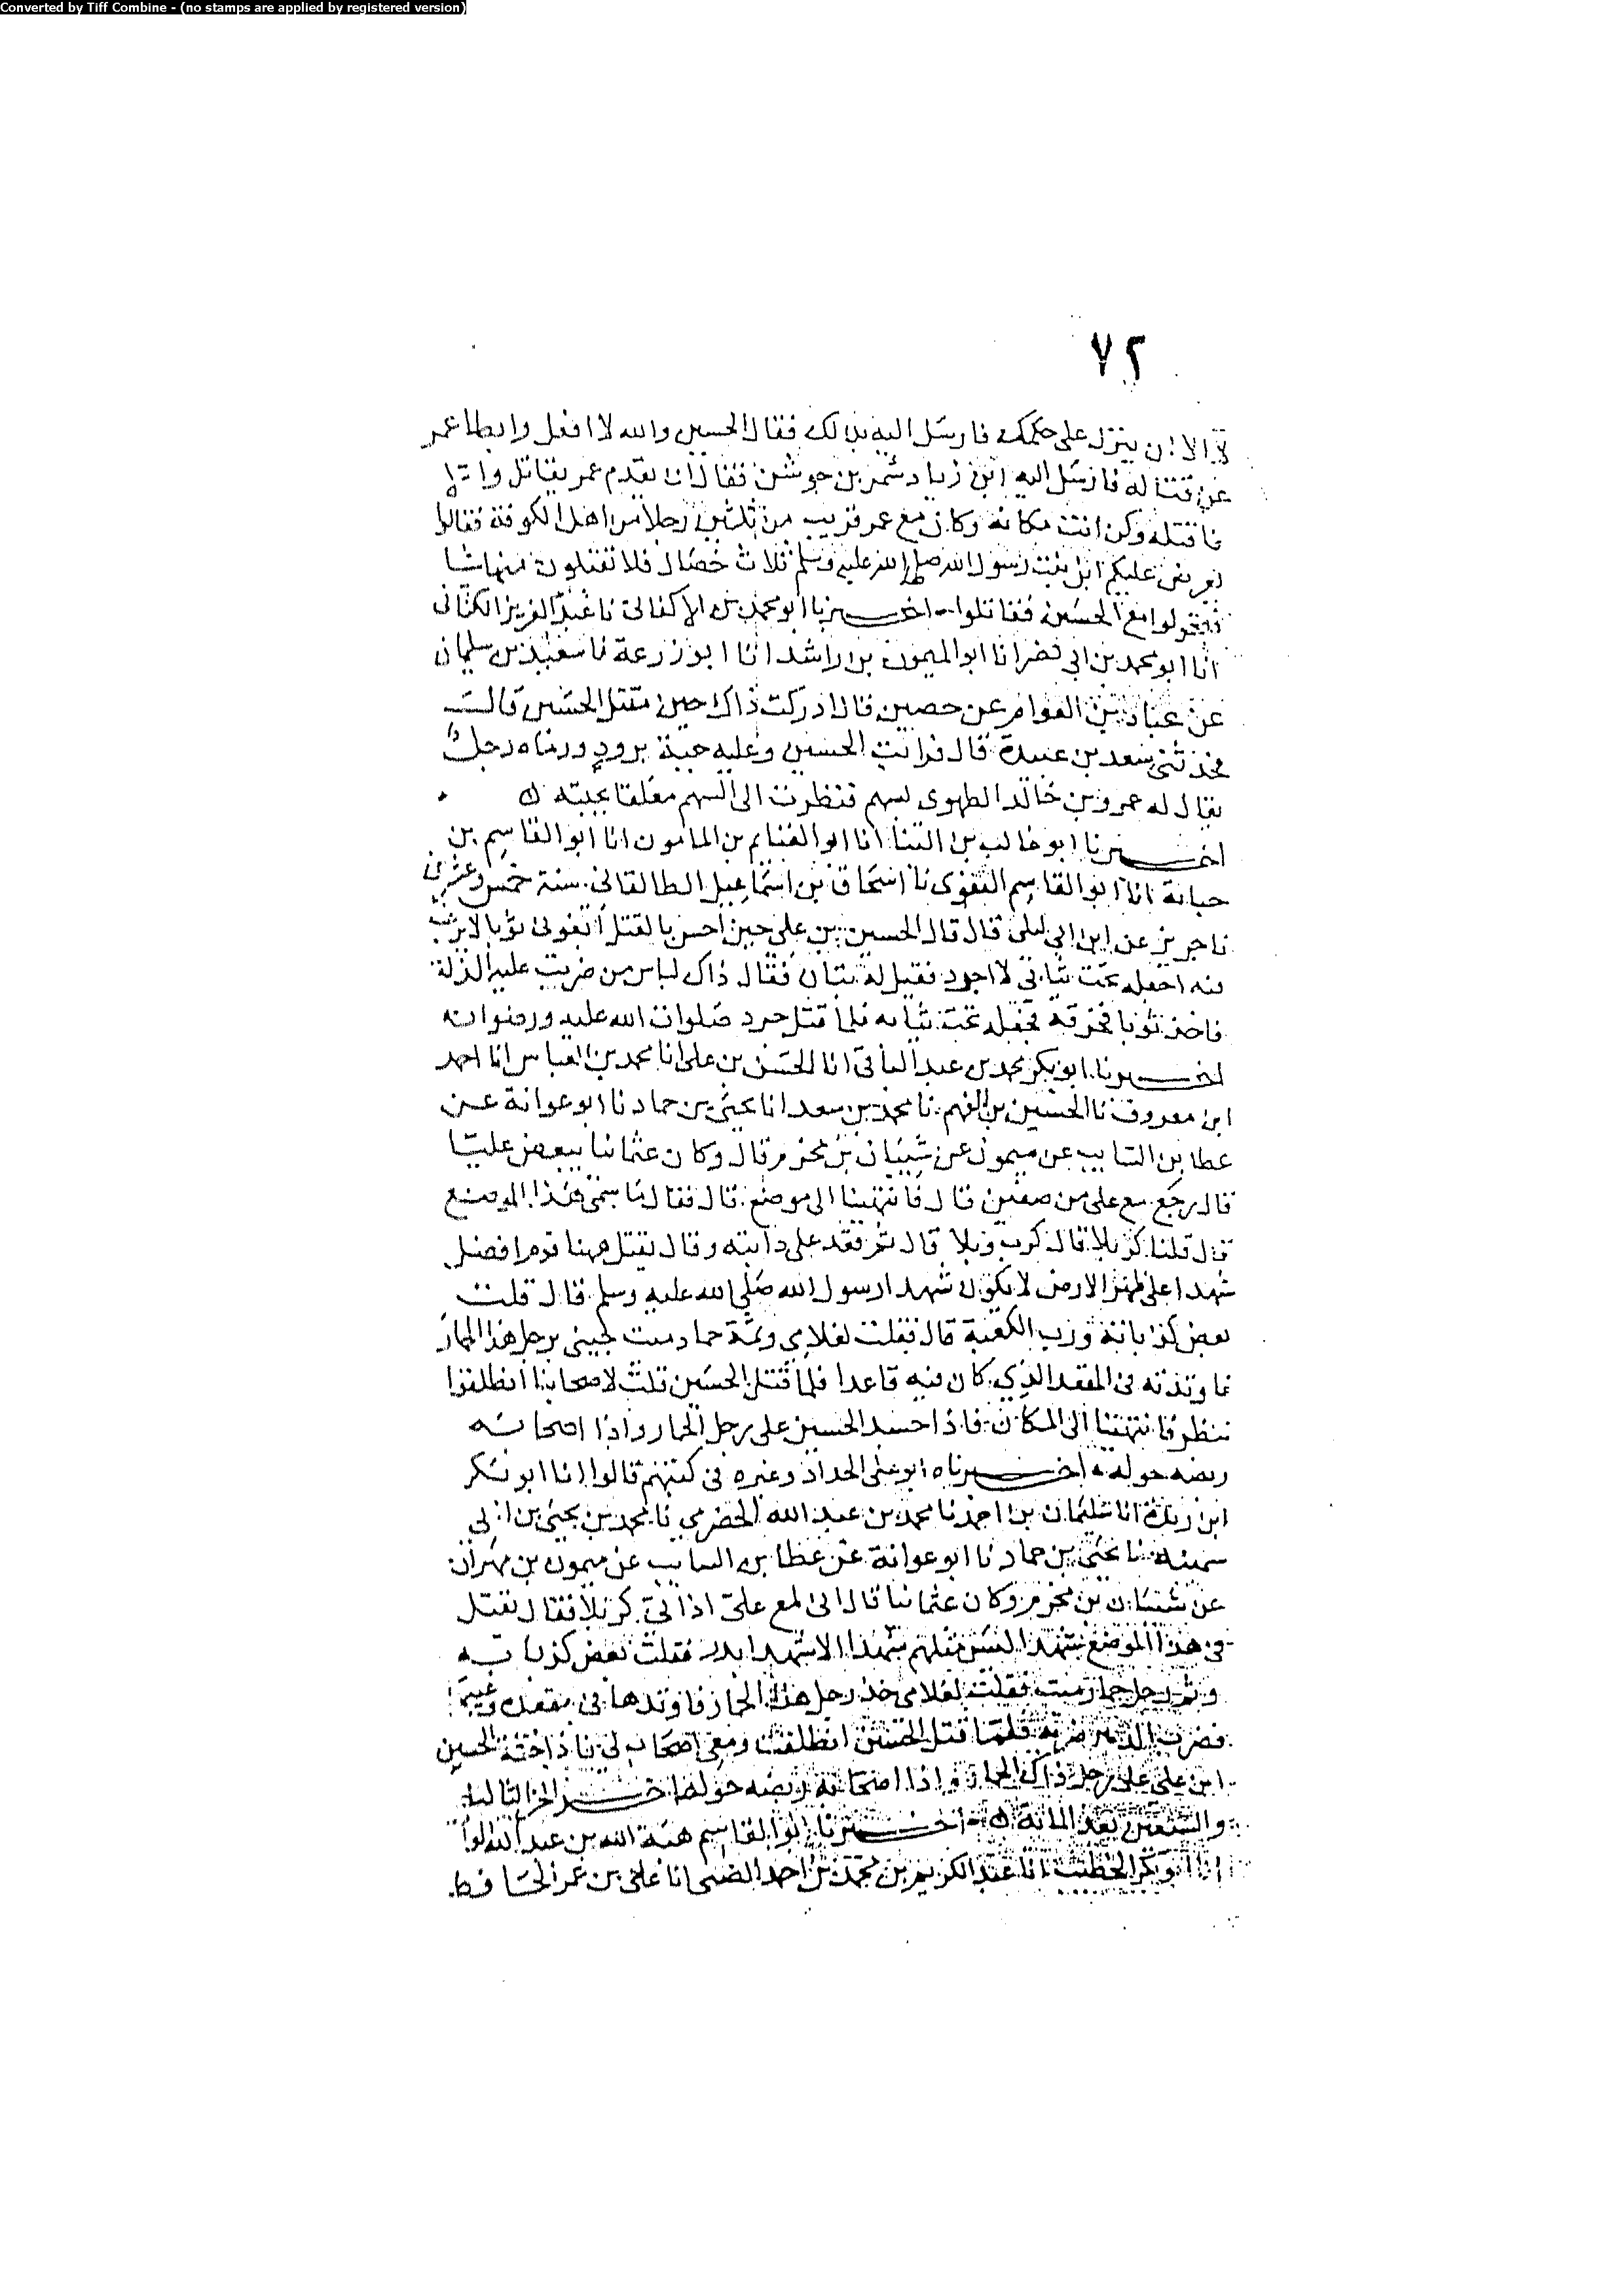 Converted by Tiff Combine - (no stamps are applied by registered version)
٧٢
لا الا ان ينزل على حكمك فارسل اليه بذلك فقال الحسين والله لا افعل وابطا عمر
عن قتاله فارسل اليه ابن زياد شمر بن جوشن فقال ان تقدم عمر يقاتل والا
فاقتله وكن انت مكانه وكان مع عمر قريب من ثلثين رجلا من اهل الكوفة فقالوا
يعرض عليكم ابن بنت رسول الله صلى الله عليه وسلم ثلاث خصال فلا تقبلون منها شيا
فتحولوا مع الحسين فقاتلوا اخبرنا ابو محمد بن الاكفاني نا عبد العزيز الكتاني
انا ابو محمد بن ابي نصر انا ابو الميمون بن راشد انا ابو زرعة نا سعيد بن سليمان
عن عباد بن العوام عن حصين قال ادركت ذاك حين مقتل الحسين قال
فحدثني سعد بن عبيدة قال فرايت الحسين وعليه جبة برود ورماه رجل
يقال له عمرو بن خالد الطهوي بسهم فنظرت الى السهم معلقا بجبته
اخبرنا ابو غالب بن البنا انا ابو الغنايم بن المامون انا ابو القاسم بن
حبابة انا ابو القاسم البغوي نا اسحاق بن اسماعيل الطالقاني سنة خمس وعشرين
نا جرير عن ابن ابي ليلى قال قال الحسين بن علي حين احس بالقتل ابغوني ثوبا لا يرغب
فيه اجعله تحت ثيابي لا اجرد فقيل له تبان فقال ذاك لباس من ضربت عليه الذلة
فاخذ ثوبا فخرقه فجعله تحت ثيابه فلما قتل جرد صلوات الله عليه ورضوانه
اخبرنا ابو بكر محمد بن عبد الباقي انا الحسن بن علي انا محمد بن العباس انا احمد
ابن معروف نا الحسين بن الفهم نا محمد بن سعد انا يحيى بن حماد نا ابو عوانة عن
عطا بن السايب عن ميمون عن شيبان بن مخرم قال وكان عثمانيا يبغض عليا
قال رجع مع علي من صفين قال فانتهينا الى موضع قال فقال ما سمي هذا الموضع
قال قلنا كربلا قال كرب وبلا قال ثم قعد على دابته وقال يقتل ههنا قوم افضل
شهدا على ظهر الارض لا يكون شهدا رسول الله صلى الله عليه وسلم قال قلت
بعض كذباته ورب الكعبة قال فقلت لغلامي وثمة حمار ميت جيني برجل هذا الحمار
فاوتدته في المقعد الذي كان فيه قاعدا فلما قتل الحسين قلت لاصحابنا انطلقوا
ننظر فانتهينا الى المكان فاذا جسد الحسين على رجل الحمار واذا اصحابه
ربضه حوله اخبرناه ابو علي الحداد وغيره في كتبهم قالوا انا ابو بكر
ابن ريذة انا سليمان بن احمد نا محمد بن عبد الله الحضرمي نا محمد بن يحيى بن ابي
سمينة نا يحيى بن حماد نا ابو عوانة عن عطا بن السايب عن ميمون بن مهران
عن شيبان بن مخرم وكان عثمانيا قال اني لمع علي اذ اتى كربلا فقال يقتل
في هذا الموضع شهدا ليس مثلهم شهدا الا شهدا بدر فقلت بعض كذباته
وثم رجل حمار ميت فقلت لغلامي خذ رجل هذا الحمار فاوتدها في مقعده وغيبها
فضرب الدهر ضربه فلما قتل الحسين انطلقت ومعي اصحاب لي فاذا جثة الحسين
ابن علي على رجل ذاك الحمار واذا اصحابه ربضه حوله اخر الجز الثالث
والتسعين بعد الماية اخبرنا ابو القاسم هبة الله بن عبد الله
انا ابو بكر الخطيب انا عبد الكريم بن محمد بن احمد الضبي انا علي بن عمر الحافظ